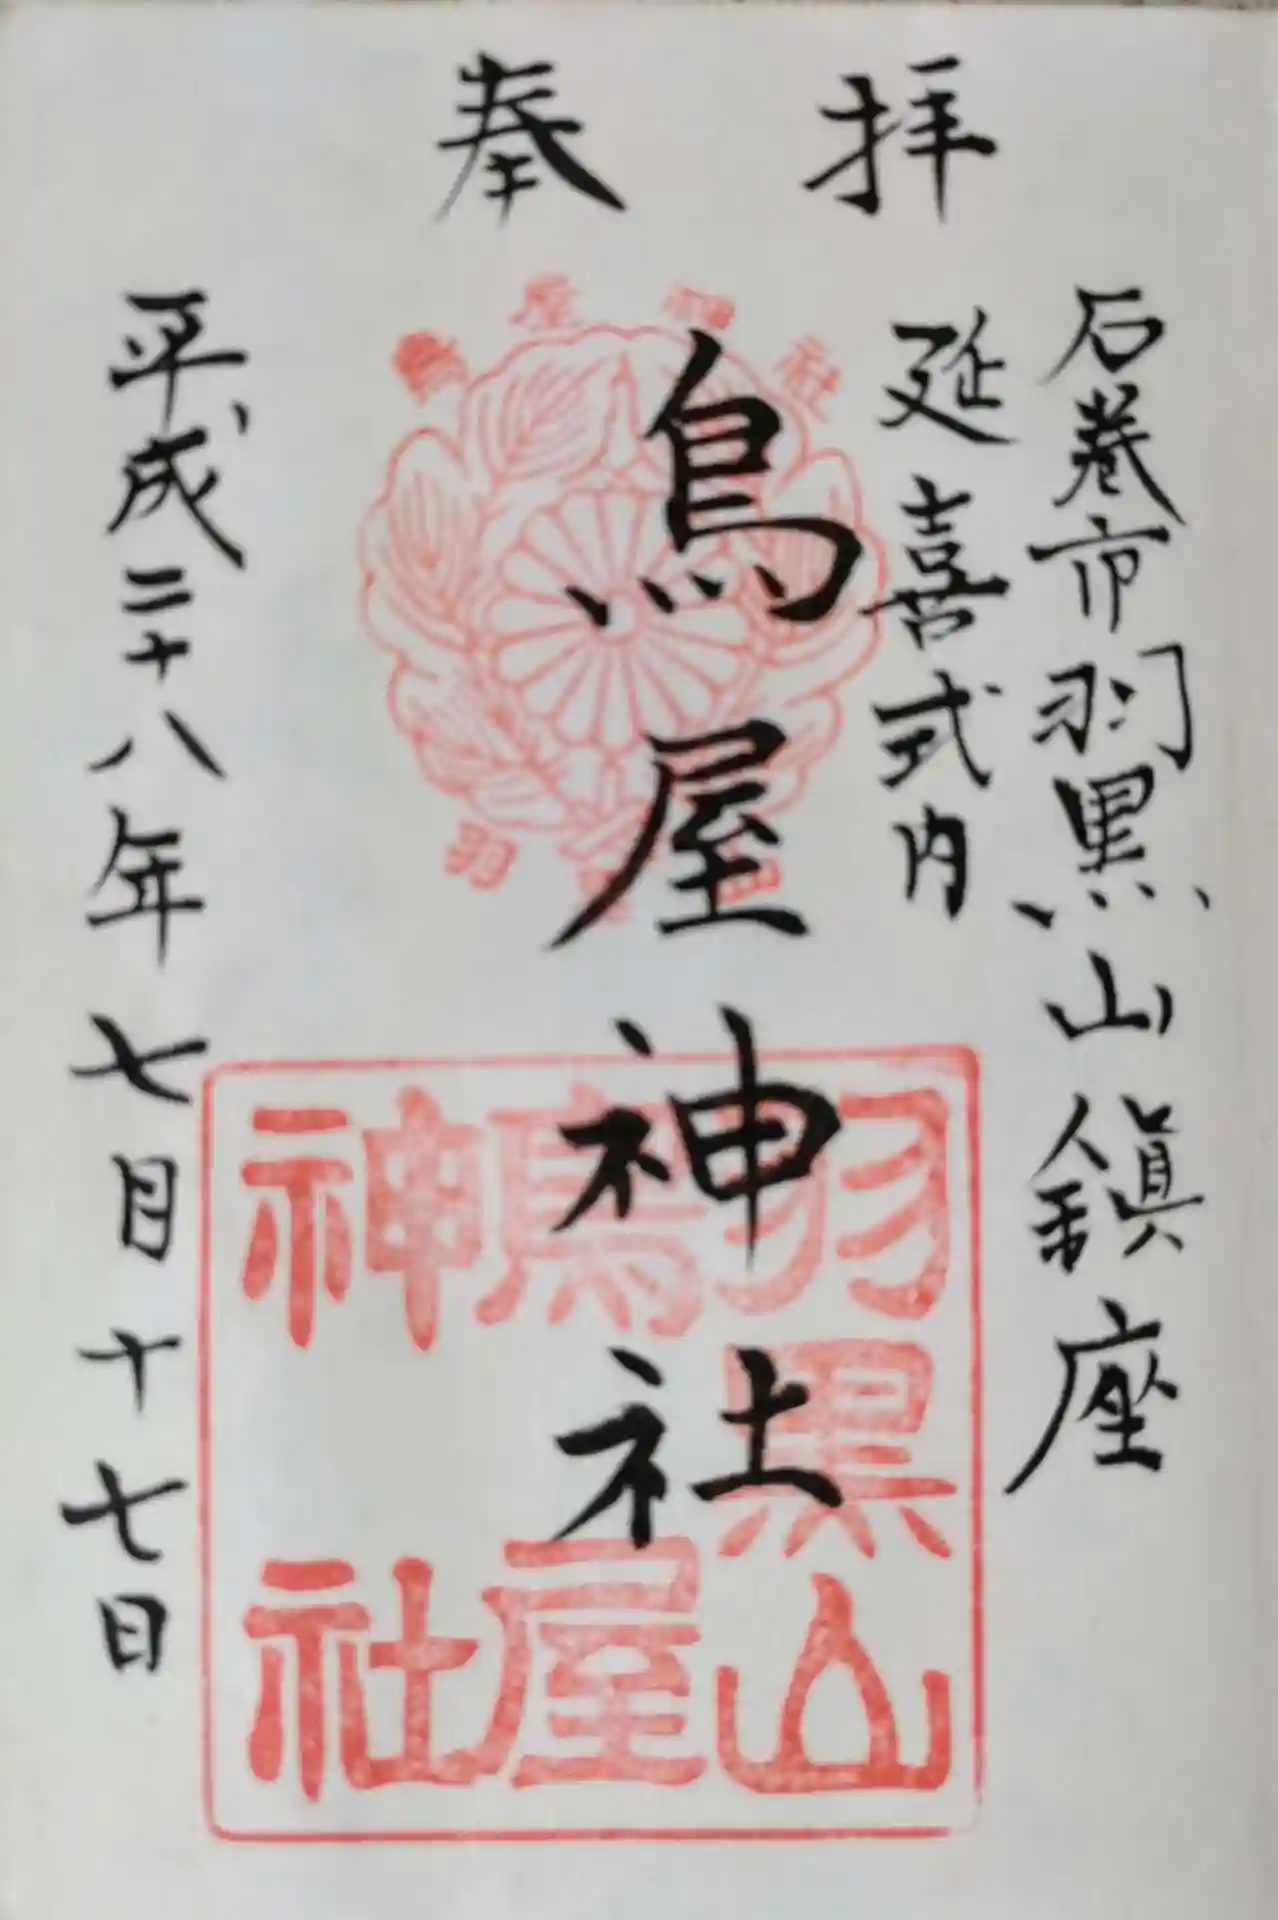 奉拝
石巻市羽黒山鎮座
延喜式内
鳥屋神社
平成二十八年七月十七日
鳥屋神社
羽黒山
羽黒山
鳥屋
神社